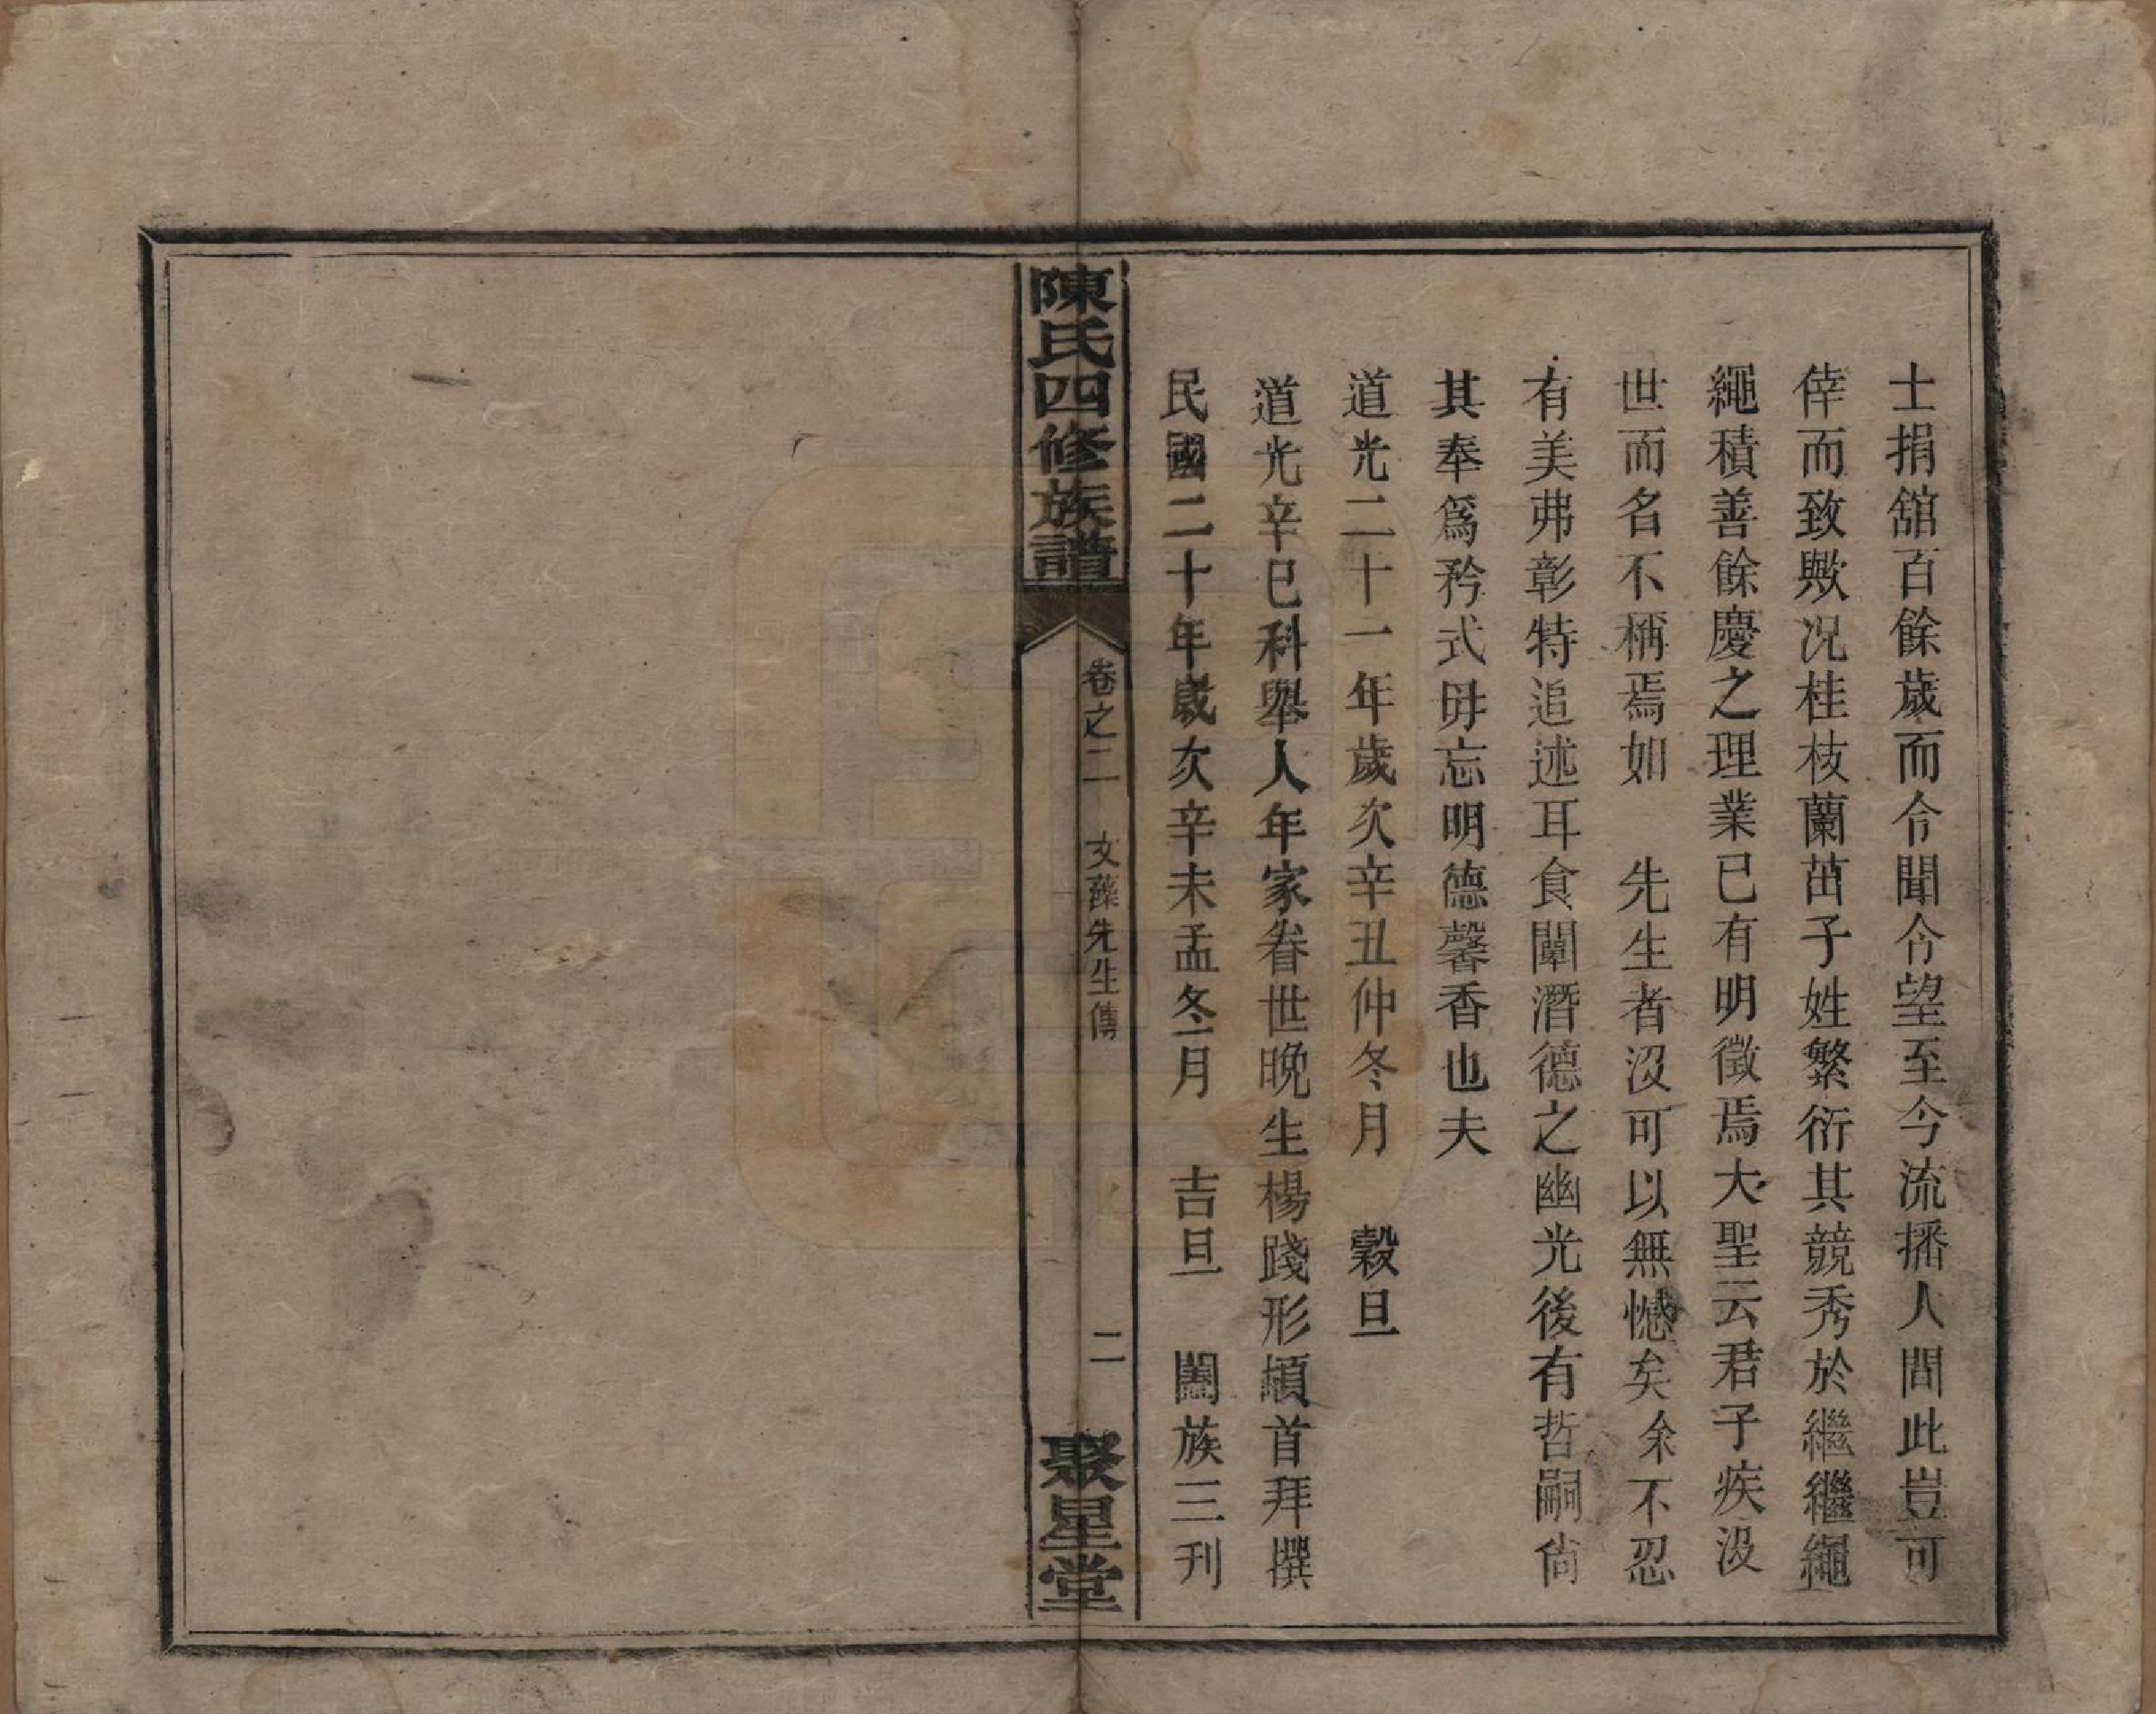 士捐舘百餘歲而令聞令望至今流播人間此豈可
倖而致歟况桂枝蘭茁子姓繁衍其競秀於繼繼繩
繩積善餘慶之理業已有明徵焉大聖云君子疾沒
世而名不稱焉如　先生者沒可以無憾矣余不忍
有美弗彰特追述耳食闡潛德之幽光後有哲嗣尙
其奉爲矜式毋忘明德馨香也夫
道光二十一年歲次辛丑仲冬月　穀旦
道光辛巳科舉人年家眷世晚生楊踐形頓首拜撰
民國二十年歲次辛未孟冬月　吉旦　闔族三刊
陳氏四修族譜
卷之二　文藻先生傳
二
聚星堂